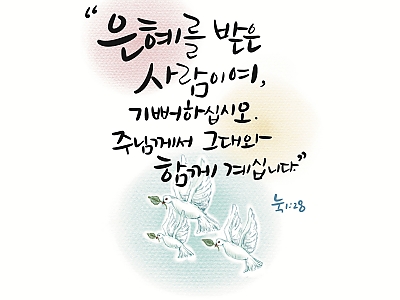 “은혜를 받은
사람이여,
기뻐하십시오.
주님께서 그대와
함께 계십니다.”
눅1:28